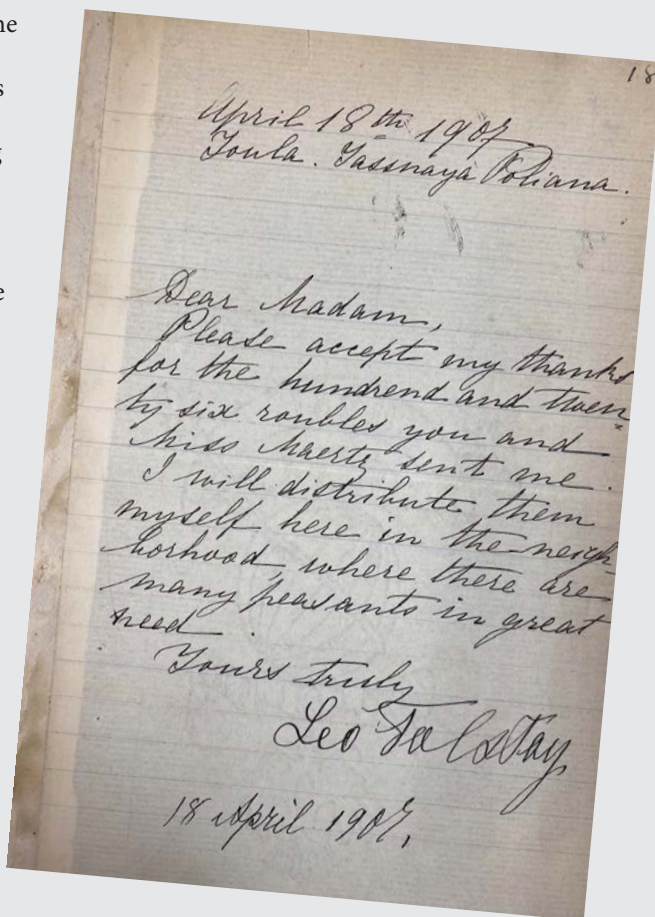 ne
s
e
18
April 18th 1907
Toula. Yassnaya Poliana.
Dear Madam,
Please accept my thanks
for the hundrend and twen
ty six roubles you and
Miss Maertz sent me.
I will distribute them
myself here in the neigh-
borhood, where there are
many peasants in great
need.
Yours truly
Leo Tolstoy
18 April 1907.